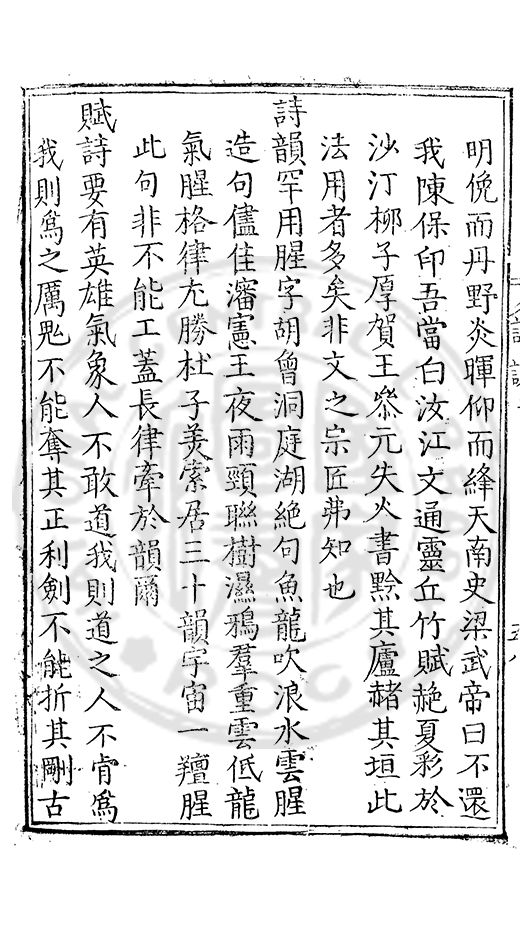 明俛而丹野炎暉仰而絳天南史梁武帝曰不還
我陳保印吾當白汝江文通靈丘竹賦赩夏彩於
沙汀柳子厚賀王叅元失火書黔其廬赭其垣此
法用者多矣非文之宗匠弗知也
詩韻罕用腥字胡曾洞庭湖絶句魚龍吹浪水雲腥
造句儘佳瀋憲王夜雨頸聯樹濕鴉羣重雲低龍
氣腥格律尤勝杜子美索居三十韻宇宙一羶腥
此句非不能工蓋長律牽於韻爾
賦詩要有英雄氣象人不敢道我則道之人不肯為
我則為之厲鬼不能奪其正利劍不能折其剛古